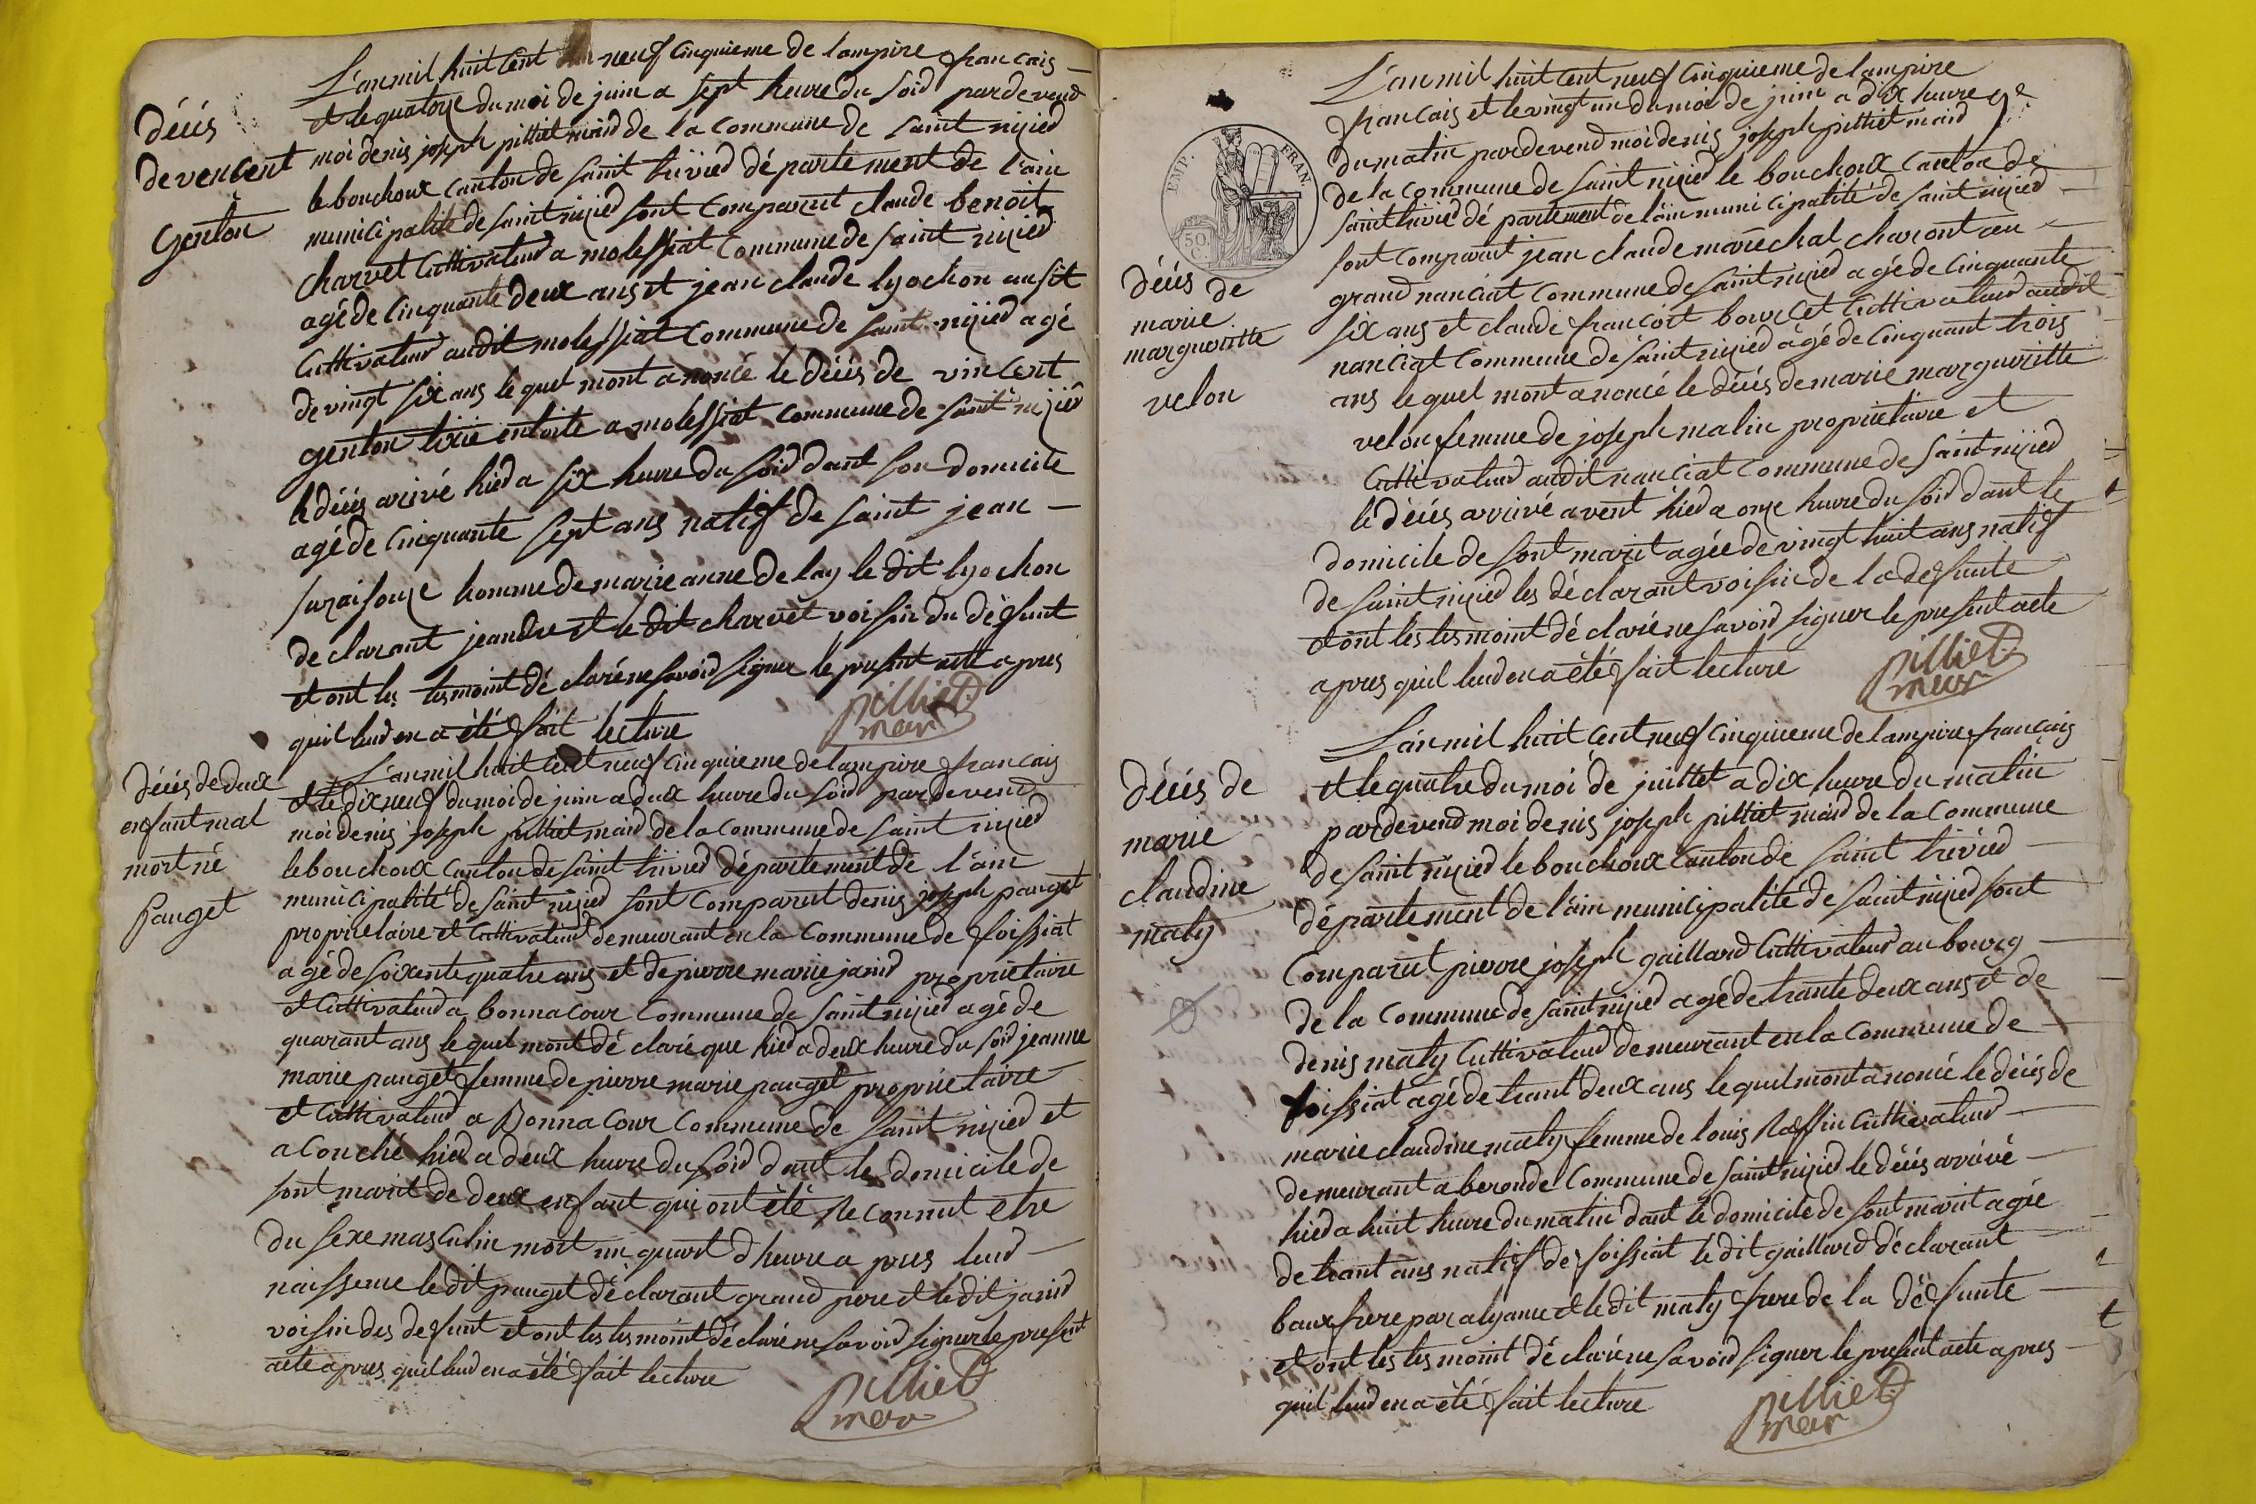 décés
de vencent
genton
L'an mil huit cent neuf cinquieme de lampire francais
et le quatorze du moi de juin a sept heure du soid pardevend
moi denis joseph pilliet maid de la commune de saint nizied
le bouchoux canton de saint trivied département de l'ain
municipalité de saint nizied sont comparut claude benoit
charvet cuttivateud a molessiat commune de saint nizied
agé de cinquante deux ans et jean claude lyochon ausit
cuttivateud audit molessiat commune de saint nizied agé
de vingt six ans lequel mont anoncé le décés de vincent
genton tixié entoite a molessiat commune de saint nizied
le décés arivé hied a six heure du soid dant son domicile
agé de cinquante sept ans natif de saint jean
suraisouze homme de marie anne delay le dit lyochon
declarant jeandre et le dit charvet voisin du défunt
et ont les tesmoint déclaré ne savoid signer le présent acte apres
quil leud en a été fait lecture
pilliet
mer
décés de deux
enfant mal
mort né
pauget
L'an mil huit cent neuf cinquieme de lampire francais
et le dix neuf du moi de juin a deux heure du soid pardevend
moi denis joseph pilliet maid de la commune de saint nizied
le bouchoux canton de saint trivied département de l'ain
municipalité de saint nizied sont comparut denis joseph pauget
proprietaire et cuttivateud demeurant en la commune de foissiat
agé de soixente quatre ans et de pierre marie janid proprietaire
et cuttivateud a bonnacour commune de saint nizied agé de
quarant ans lequel mont déclaré que hied a deux heure du soid jeanne
marie pauget femme de pierre marie pauget proprietaire
et cuttivateud a Bonnacour commune de saint nizied et
acouché hied a deux heure du soid dant le domicile de
sont marit de deux enfant qui ont été Reconnut etre
du sexe masculin mort un quart d heure apres leud
naissence le dit pauget déclarant grand pere et le dit janid
voisin des defunt et ont les tesmoint déclaré ne savoid signer le présent
acte apres quil leud en a été fait lecture
pilliet
mer
EMP. FRAN.
50.
C.
9e
décés de
marie
margueritte
velon
L'an mil huit cent neuf cinquieme de lampire
francais et le vingt un du moi de juin a dix heure
du matin pardevend moi denis joseph pilliet maid
de la commune de saint nizied le bouchoux canton de
saint trivied département de l'ain municipalité de saint nizied
sont comparut jean claude marechal charont au
grand nanciat commune de saint nizied agé de cinquante
six ans et claude francoit bourcet cuttivateud audit
nanciat commune de saint nizied agé de cinquant trois
ans lequel mont anoncé le décés de marie margueritte
velon femme de joseph malin proprietaire et
cuttivateud audit nanciat commune de saint nizied
le décés arrivé avent hied a onze heure du soid dant le
domicile de sont marit agée de vingt huit ans natif
de saint nizied les déclarant voisin de la defunte
et ont les tesmoint déclaré ne savoid signer le present acte
apres quil leud en a été fait lecture
pilliet
mer
décés de
marie
claudine
maty
L'an mil huit cent neuf cinquieme de lampire francais
et le quatre du moi de juillet a dix heure du matin
pardevend moi denis joseph pilliet maid de la commune
de saint nizied le bouchoux canton de saint trévied
département de l'ain municipalité de saint nizied sont
comparut pierre joseph gaillard cuttivateud au bourg
de la commune de saint nizied agé de trante deux ans et de
denis maty cuttivateud demeurant en la commune de
foissiat agé de trant deux ans lequel mont anoncé le décés de
marie claudine maty femme de louis Raffin cuttivateud
demeurant a beronde commune de saint nizied le décés arrivé
hied a huit heure du matin dant le domicile de sont marit agée
de trant ans natif de foissiat le dit gaillard déclarant
baux frere par alyance et le dit maty frere de la défunte
et ont les tesmoint déclaré ne savoid signer le présent acte apres
quil leud en a été fait lecture
pilliet
mer